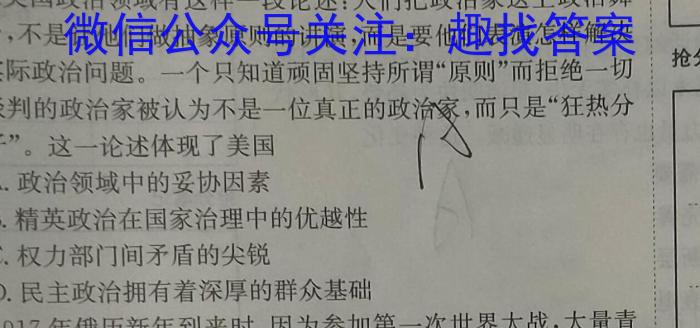 美国政治领域有这样一段论述：人们把政治家送上政治舞
，不是
微信公众号关注：趣找答案
实际政治问题。一个只知道顽固坚持所谓“原则”而拒绝一切
谈判的政治家被认为不是一位真正的政治家，而只是“狂热分
子”。这一论述体现了美国
A. 政治领域中的妥协因素
B. 精英政治在国家治理中的优越性
C. 权力部门间矛盾的尖锐
D. 民主政治拥有着深厚的群众基础
017年俄历新年到来时，因为参加第一次世界大战，大量青
抢分
A